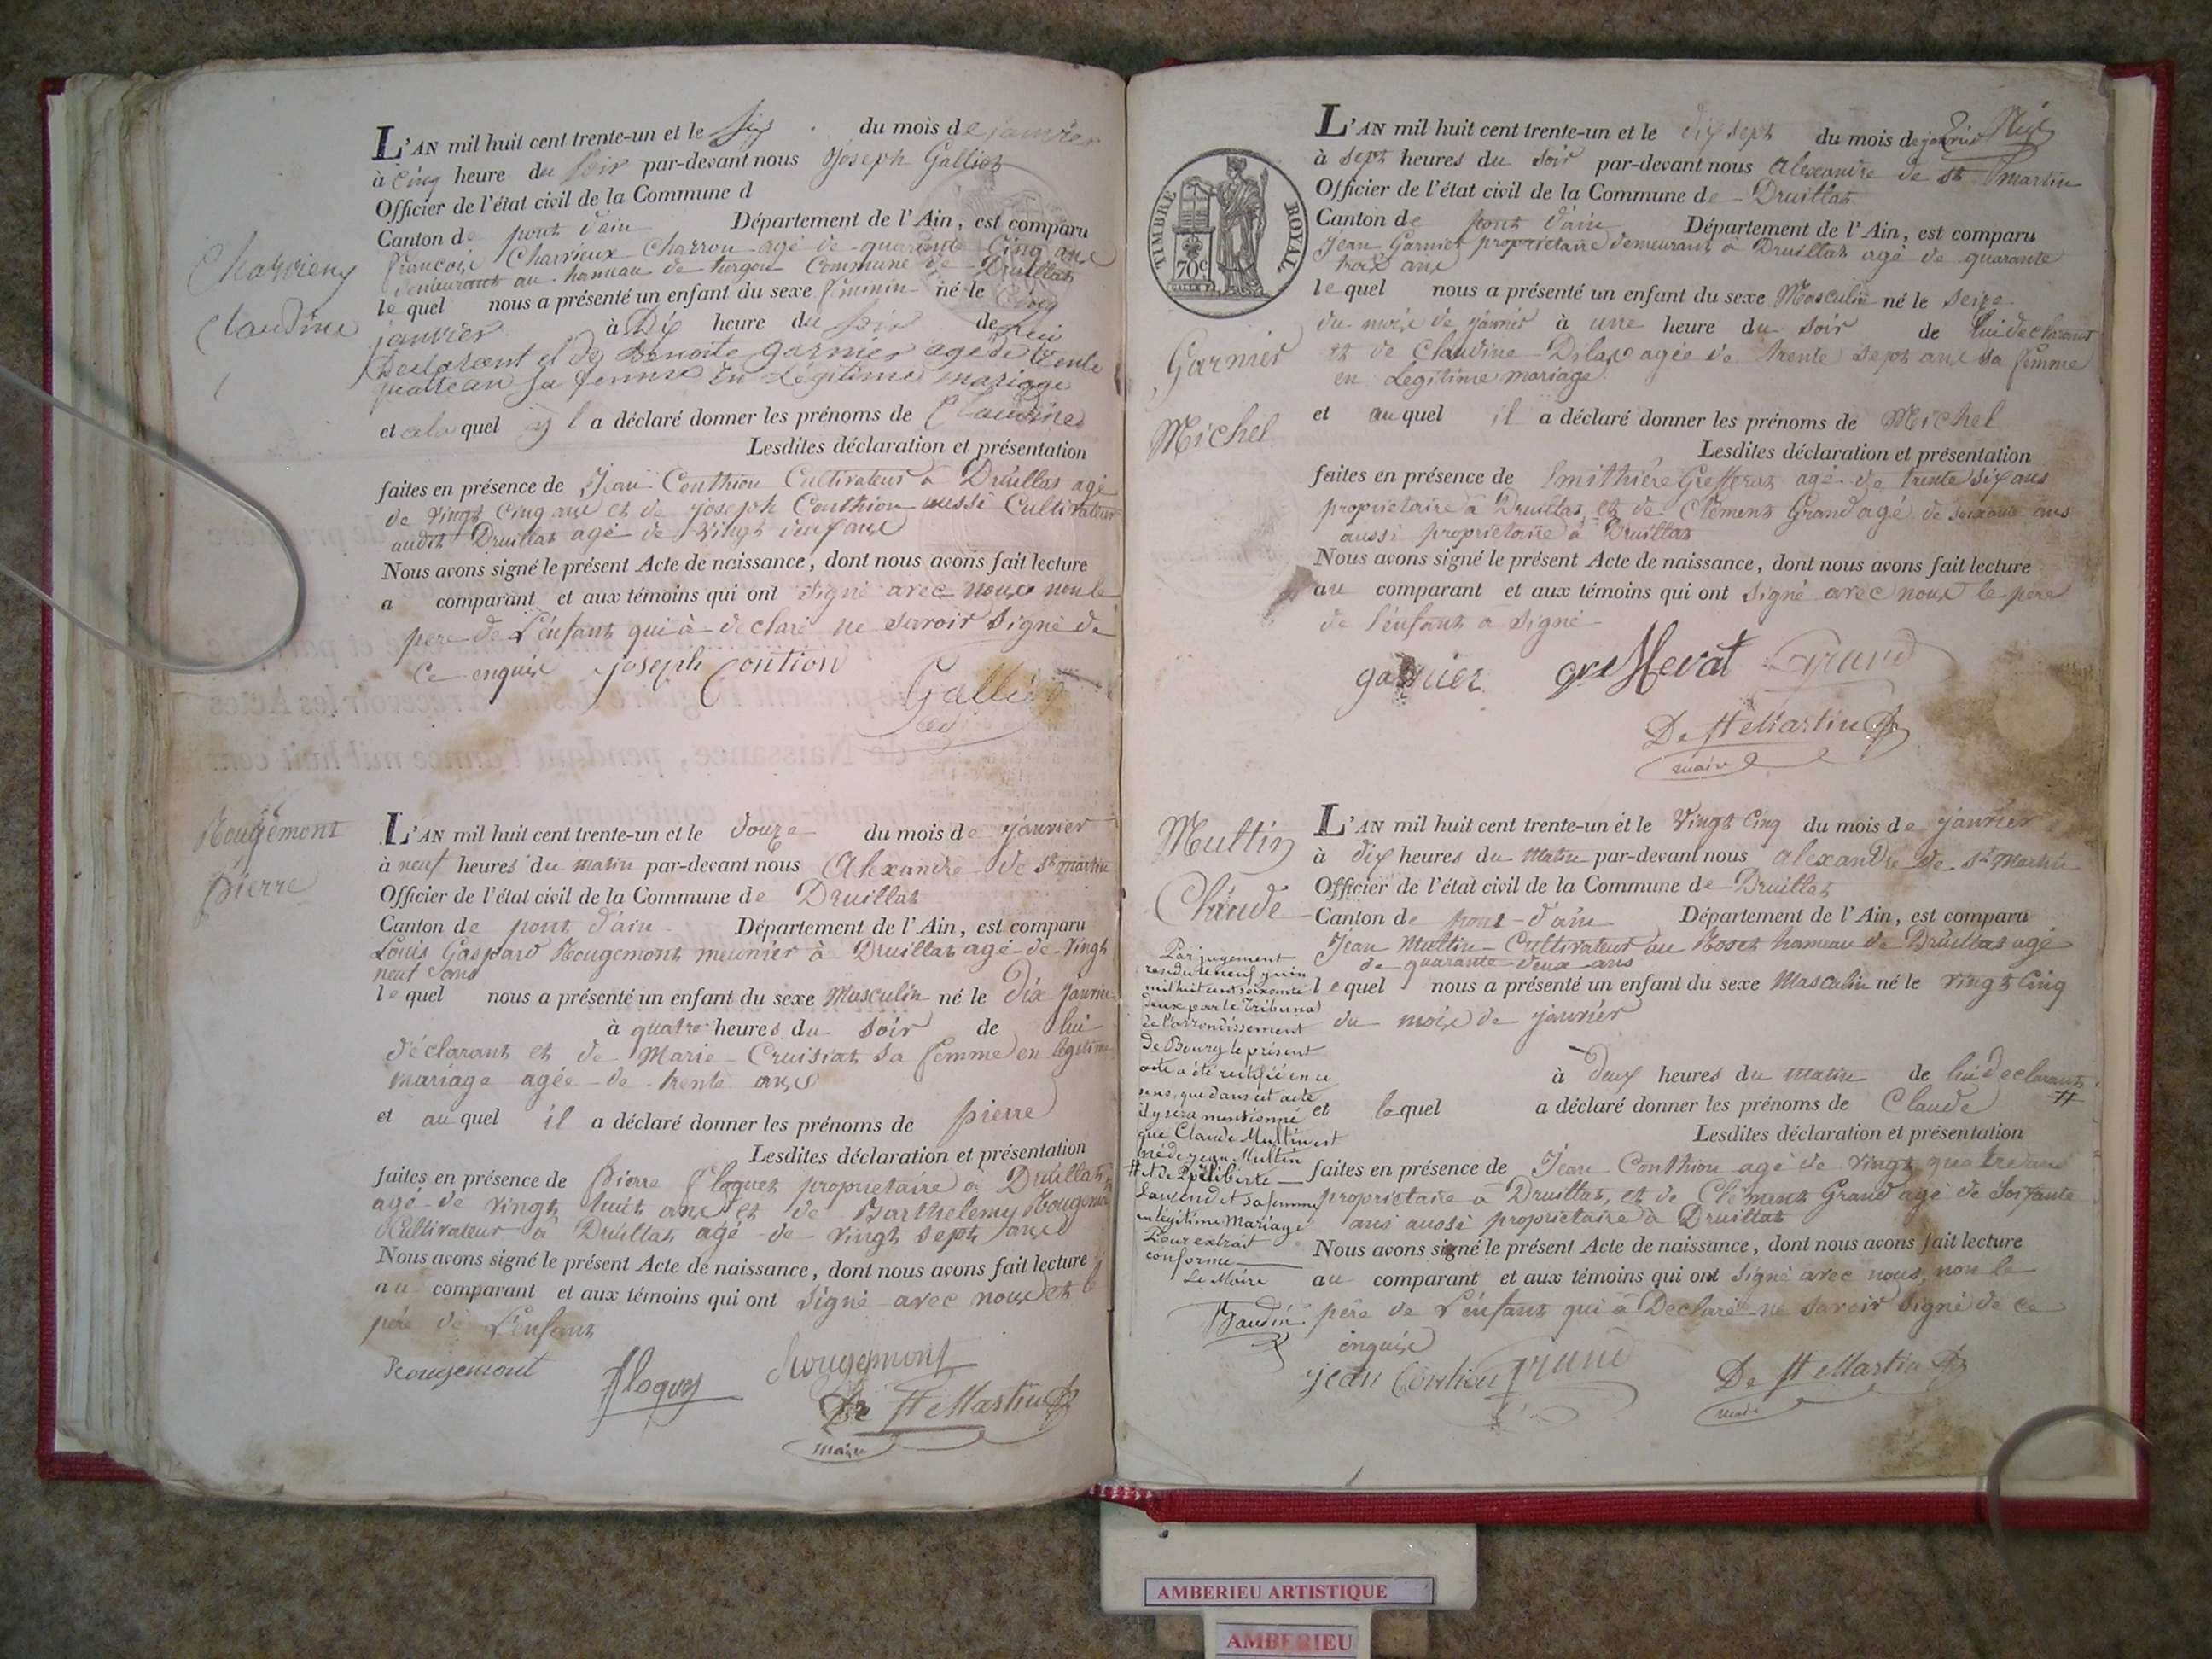 Charvieux
Claudine
L'AN mil huit cent trente-un et le six du mois de janvier
à Cinq heure du soir par-devant nous Joseph Galliot
Officier de l'état civil de la Commune d
Canton de pont d'ain Département de l'Ain, est comparu
françois Charvieux Charron agé de quarante Cinq ans
demeurant au hameau de turgon Commune de Druillat
le quel nous a présenté un enfant du sexe féminin né le Cinq
janvier à Dix heure du soir de Lui
Declarant et de Benoite garnier agée de trente
quatre an sa femme En Légitime mariage
et a la quel il a déclaré donner les prénoms de Claudine
Lesdites déclaration et présentation
faites en présence de Jean Conthion Cultivateur à Druillat agé
de vingt cinq ans et de joseph Conthion aussi Cultivateur
audit Druillat agé de vingt neuf ans
Nous avons signé le présent Acte de naissance, dont nous avons fait lecture
a comparant et aux témoins qui ont signé avec nous non le
pere de L'enfant qui à declaré ne savoir signé de
Ce enquis joseph Contion
Galliot
Rougemont
pierre
L'AN mil huit cent trente-un et le douze du mois de janvier
à neuf heures du matin par-devant nous Alexandre de st martin
Officier de l'état civil de la Commune de Druillat
Canton de pont d'ain Département de l'Ain, est comparu
Louis Gaspard Rougemont meunier à Druillat agé de vingt
neuf ans
le quel nous a présenté un enfant du sexe Masculin né le dix janvier
à quatre heures du soir de lui
déclarant et de Marie Cruisiat sa femme en légitime
mariage agée de trente ans
et au quel il a déclaré donner les prénoms de pierre
Lesdites déclaration et présentation
faites en présence de pierre floquet proprietaire a Druillat
agé de vingt huit ans et de Barthelemy Rougemont
Cultivateur à Druillat agé de vingt sept ans
Nous avons signé le présent Acte de naissance, dont nous avons fait lecture
au comparant et aux témoins qui ont signé avec nous et le
père de L'enfant
Rougemont floquet Rougemont
De St Martin
maire
TIMBRE ROYAL
70c
Garnier
Michel
L'AN mil huit cent trente-un et le dix sept du mois de janvier
à sept heures du soir par-devant nous alexandre de st martin
Officier de l'état civil de la Commune de Druillat
Canton de pont d'ain Département de l'Ain, est comparu
Jean Garnier proprietaire demeurant à Druillat agé de quarante
trois ans
le quel nous a présenté un enfant du sexe Masculin né le seize
du mois de janvier à une heure du soir de lui declarant
et de Claudine agée de trente sept ans sa femme
en Legitime mariage
et au quel il a déclaré donner les prénoms de Michel
Lesdites déclaration et présentation
faites en présence de agé de trente six ans
proprietaire à Druillat et de Clément Grand agé de soixante ans
aussi proprietaire à Druillat
Nous avons signé le présent Acte de naissance, dont nous avons fait lecture
au comparant et aux témoins qui ont signé avec nous le père
de l'enfant a signé
garnier greffevat Grand
De St Martin
maire
Multin
Claude
L'AN mil huit cent trente-un et le vingt Cinq du mois de janvier
à dix heures du matin par-devant nous alexandre de st Martin
Officier de l'état civil de la Commune de Druillat
Canton de pont d'ain Département de l'Ain, est comparu
Jean Multin Cultivateur au hameau de Druillat agé
de quarante deux ans
le quel nous a présenté un enfant du sexe Masculin né le vingt Cinq
du mois de janvier
à deux heures du matin de lui declarant
#
et lequel a déclaré donner les prénoms de Claude
Lesdites déclaration et présentation
faites en présence de Jean Conthion agé de vingt quatre ans
proprietaire à Druillat, et de Clément Grand agé de soixante
ans aussi proprietaire à Druillat
Nous avons signé le présent Acte de naissance, dont nous avons fait lecture
au comparant et aux témoins qui ont signé avec nous, non le
père de L'enfant qui à Declaré ne savoir signé de ce
enquis
jean Conthion Grand De St Martin
maire
Par jugement
rendu le neuf juin
mil huit cent soixante
deux par le Tribunal
de l'arrondissement
de Bourg le présent
acte a été rectifié en ce
sens, que dans cet acte
il y sera mentionné
que Claude Multin est
né de Jean Multin
# et de Philiberte
Laurend et sa femme
en légitime Mariage
Pour extrait
conforme
Le Maire
Baudin
AMBERIEU ARTISTIQUE
AMBERIEU